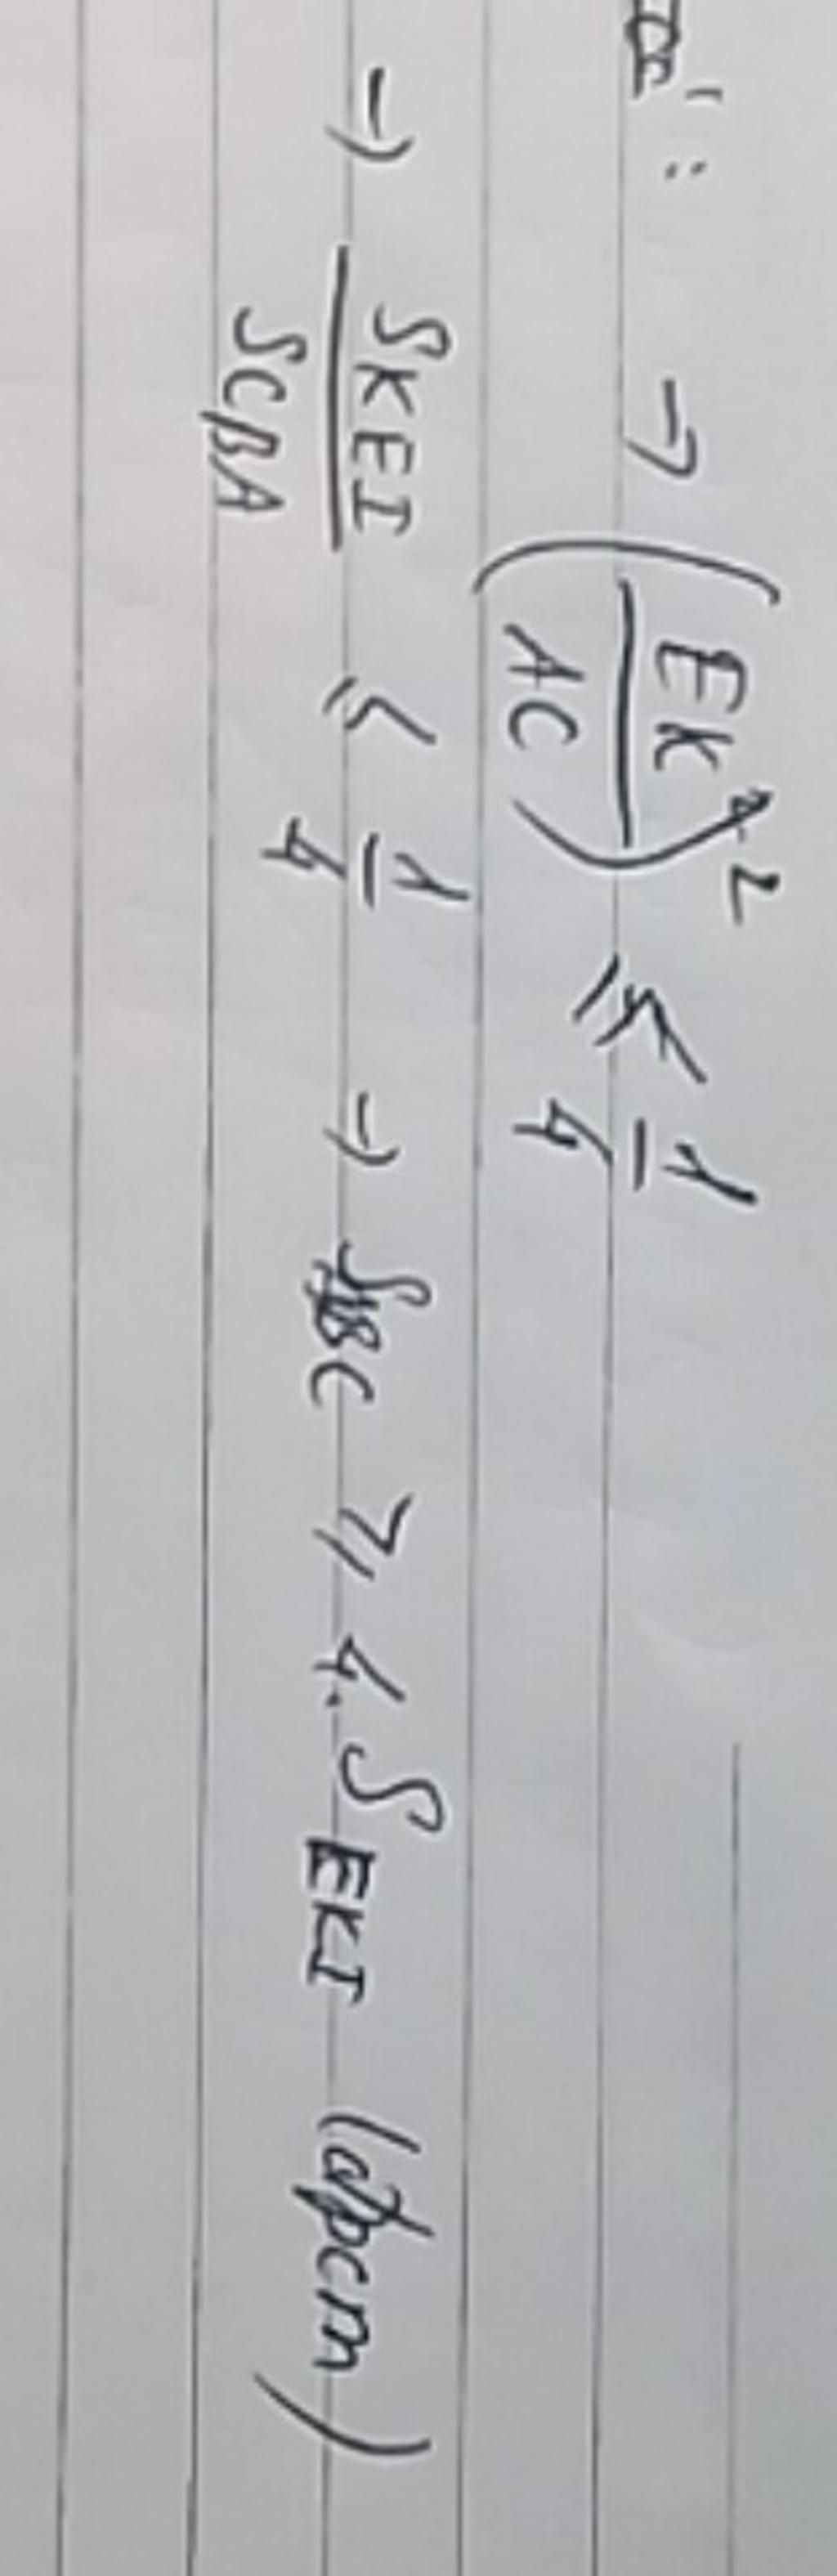 → (EK/AC)² ≤ 1/4
→ S KEI / S CBA ≤ 1/4 → S ABC ≥ 4. S EKI (đpcm)